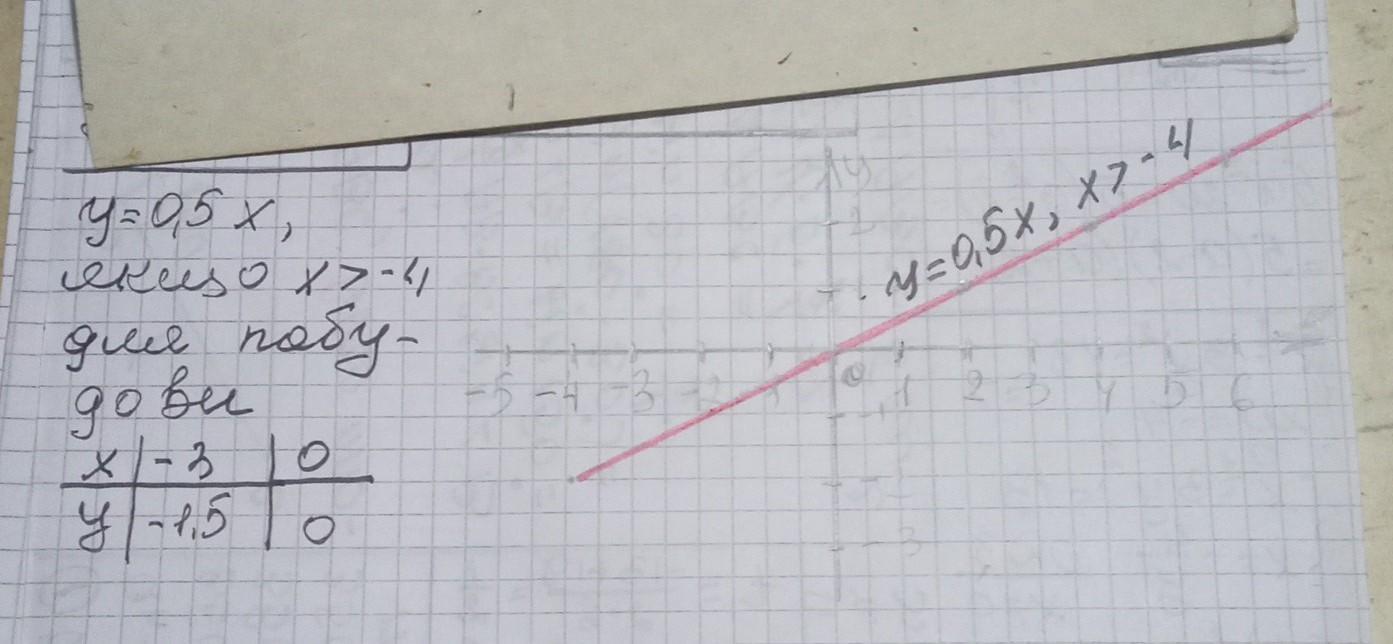 y=0,5x,
якщо x>-4
для побу-
дови
x -3 0
y -1,5 0
y
2
y=0,5x, x>-4
-5 -4 -3 -2 0 1 2 3 4 5 6
-1
-3